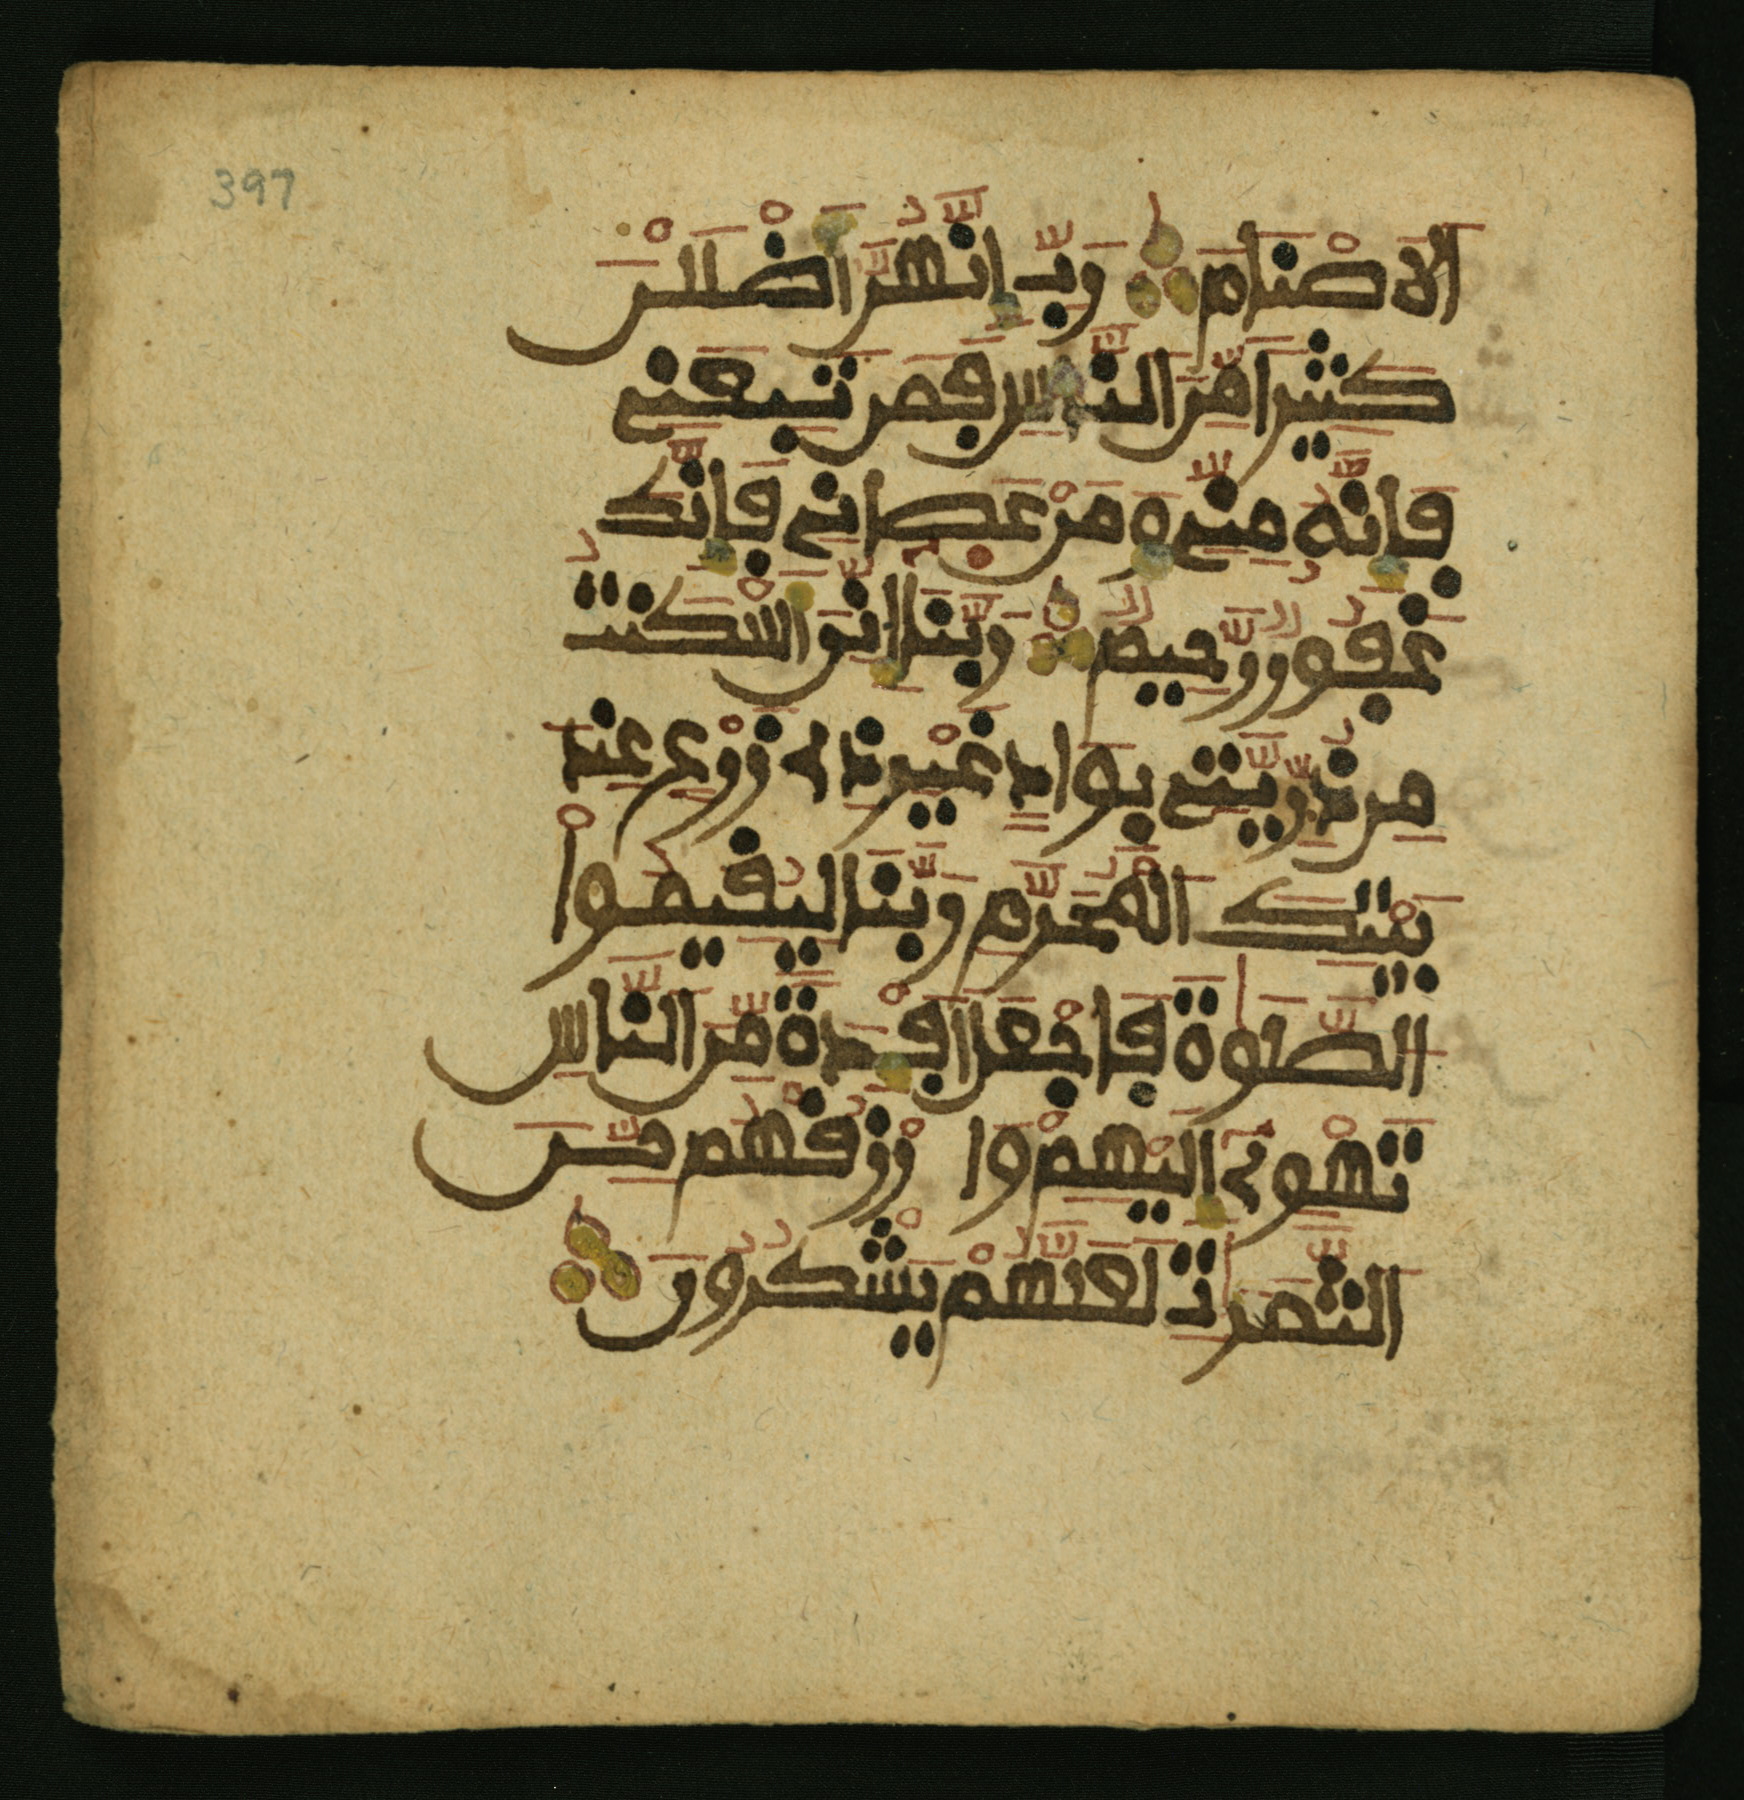 397
الَاصْنَامَ رَبِّ إِنَّهُنَّ أَضْلَلْنَ
كَثِيرًا مِّنَ النَّاسِ فَمَن تَبِعَنِے
فَإِنَّهُ مِنِّے وَمَنْ عَصَانِے فَإِنَّكَ
غَفُورٌ رَّحِيمٌ رَّبَّنَا إِنِّیَ أَسْكَنتُ
مِن ذُرِّيَّتِے بِوَادٍ غَيْرِ ذِے زَرْعٍ عِندَ
بَيْتِكَ الْمُحَرَّمِ رَبَّنَا لِيُقِيمُواْ
الصَّلَوٰةَ فَاجْعَلْ أَفْـِٕدَةً مِّنَ النَّاسِ
تَهْوِے إِلَيْهِمْ وَارْزُقْهُم مِّنَ
الثَّمَرَٰتِ لَعَلَّهُمْ يَشْكُرُونَ